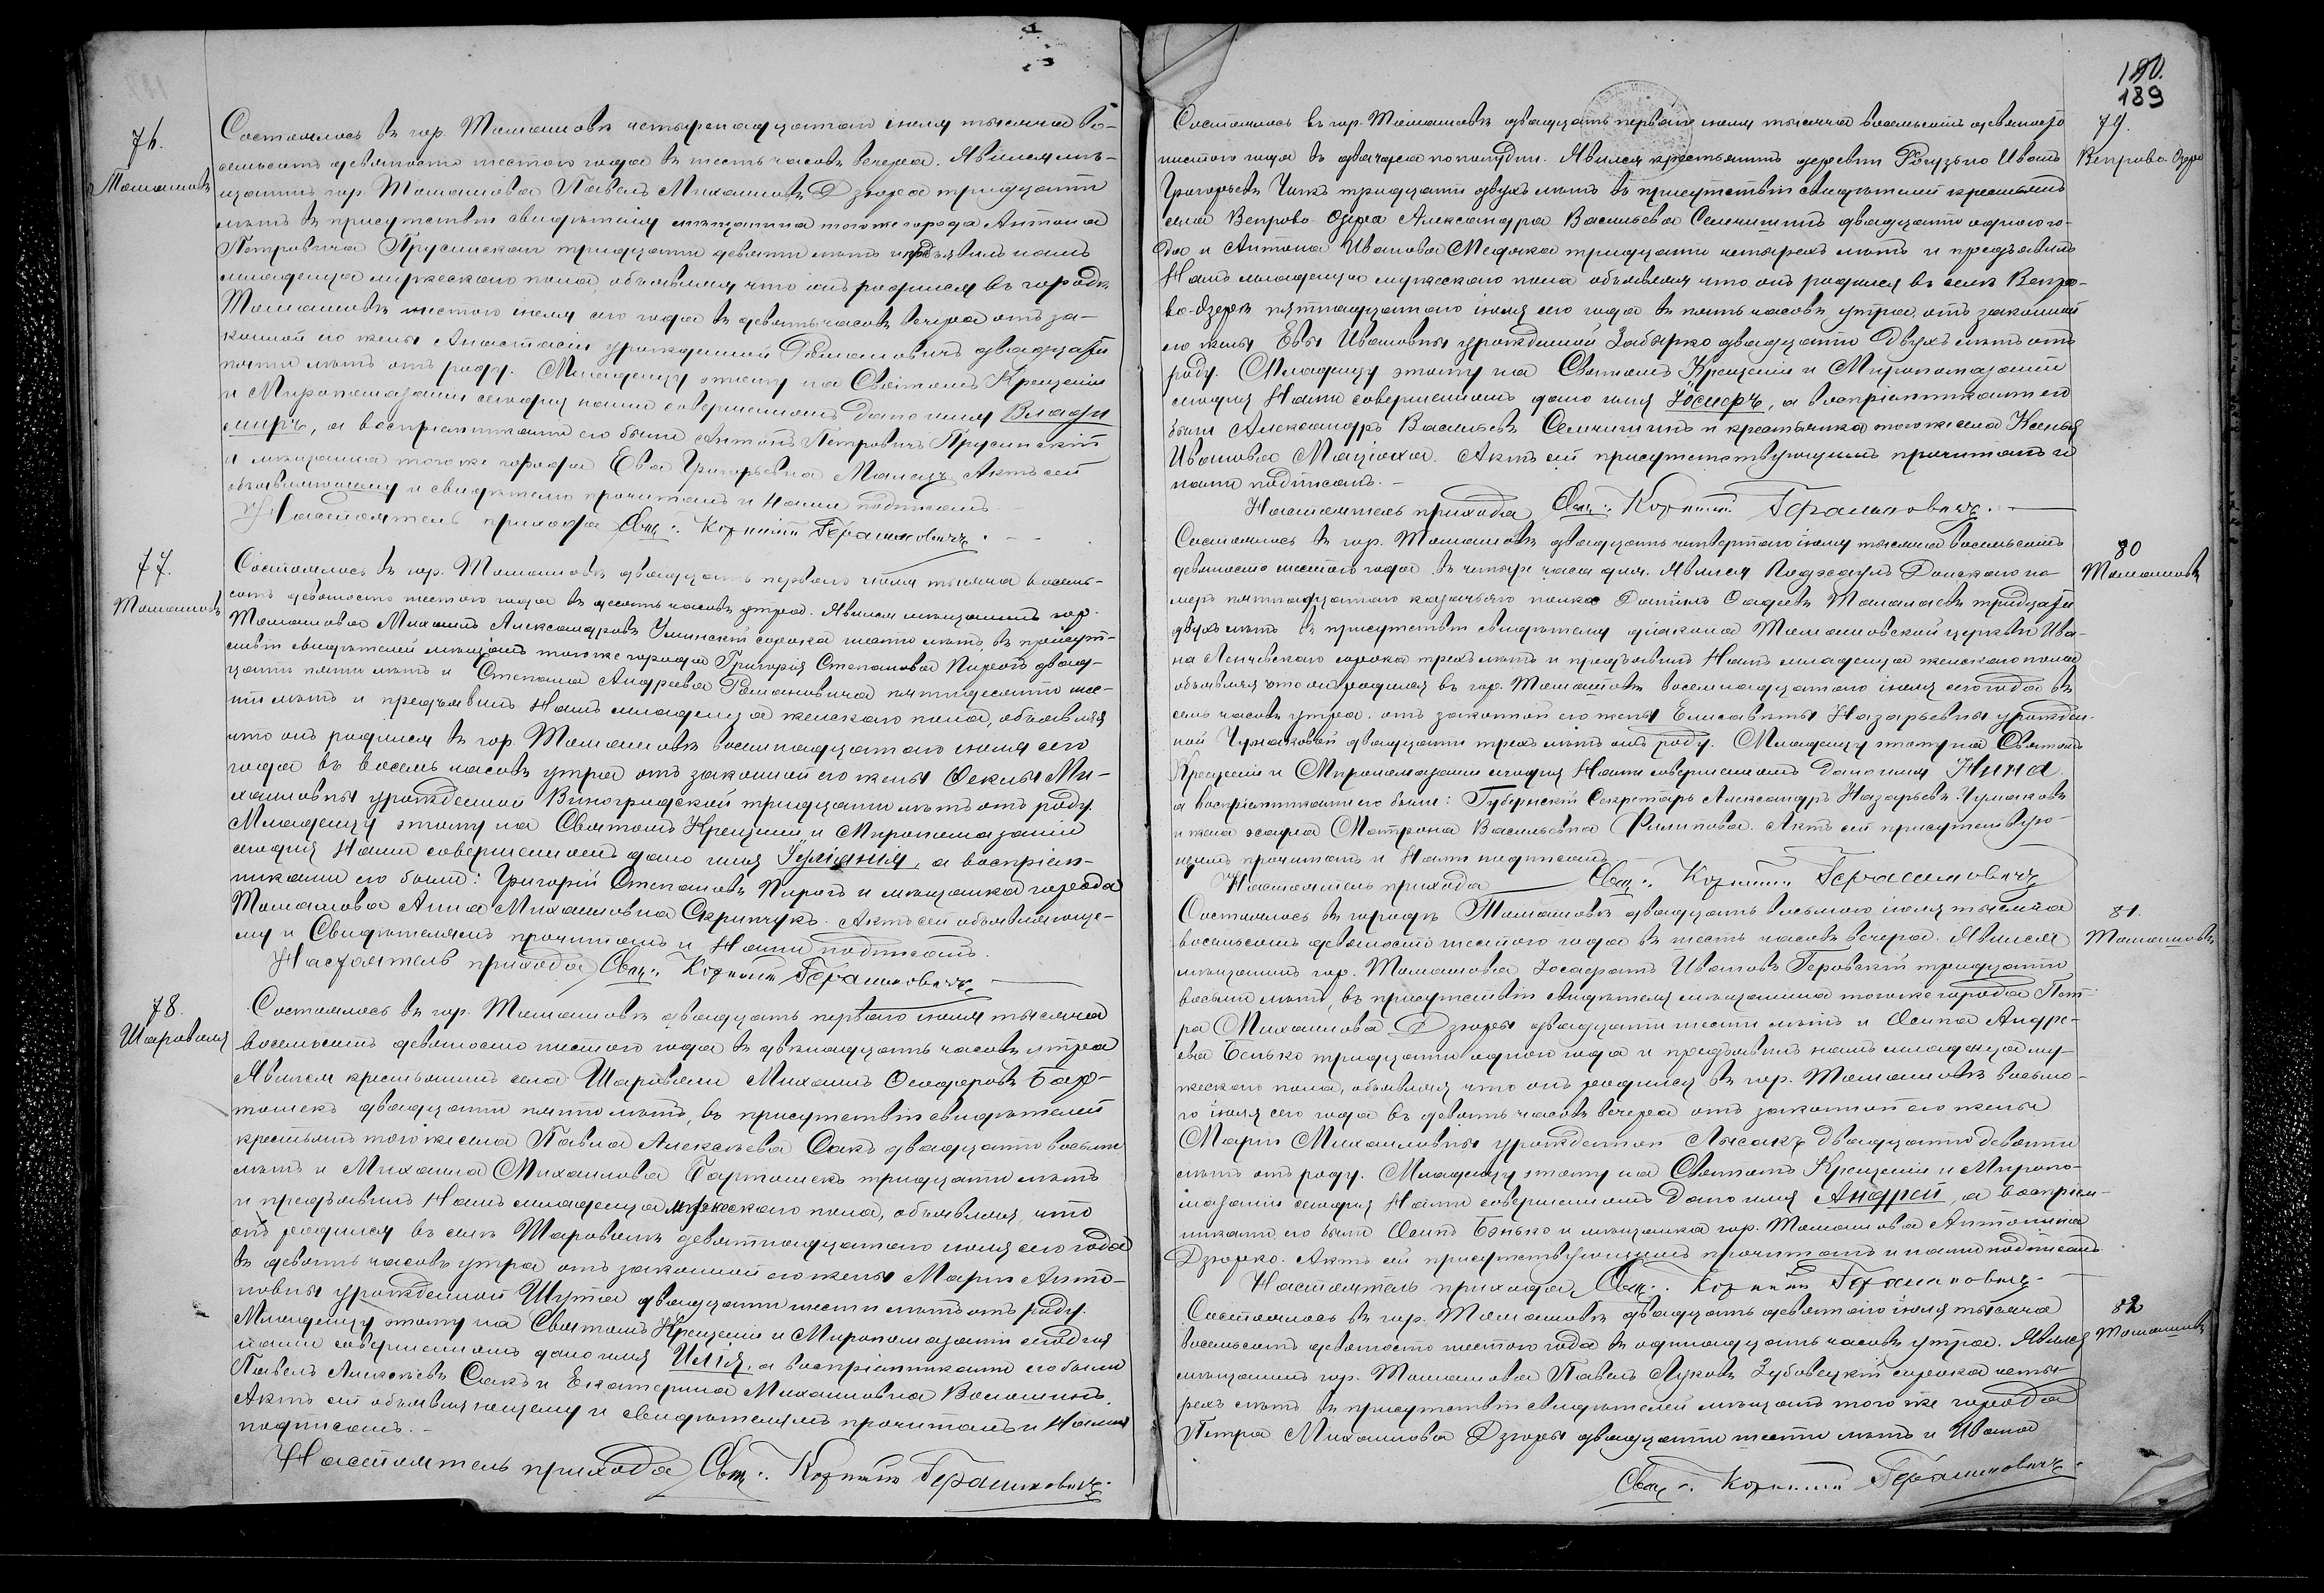 76.
Томашовъ
Состоялось въ гор. Томашовѣ четырнадцатаго іюля тысяча во-
семьсотъ девяносто шестого года въ шесть часовъ вечера. Явился мѣ-
щанинъ гор. Томашова Павелъ Михаиловъ Дзюра тридцати
лѣтъ въ присутствіи свидѣтеля мѣщанина того же города Антона
Петровича Прусинскаго тридцати девяти лѣтъ и предъявилъ намъ
младенца мужескаго пола, объявляя что онъ родился въ городѣ
Томашовѣ шестого іюля сего года въ девять часовъ вечера отъ за-
конной его жены Анастасіи урожденной Романовичъ двадцати
пяти лѣтъ отъ роду. Младенцу этому на Святомъ Крещеніи
и Миропомазаніи сегодня нами совершенномъ дано имя Влади
миръ, а воспріемниками его были Антонъ Петровичъ Прусинскій
и мѣщанка того же города Ева Григорьевна Малецъ. Актъ сей
объявляющему и свидѣтелю прочитанъ и Нами подписанъ.
Настоятель прихода Свящ. Корнилій Герасимовичъ.
77.
Томашовъ
Состоялось въ гор. Томашовѣ двадцать перваго іюля тысяча восемь-
сотъ девяносто шестого года въ десять часовъ утра. Явился мѣщанинъ гор.
Томашова Михаилъ Александровъ Уминскій сорока шести лѣтъ, въ присут-
ствіи свидѣтелей мѣщанъ того же города Григорія Степанова Пирогъ двад-
цати пяти лѣтъ и Степана Андреева Романовича пятидесяти ше-
сти лѣтъ и предъявилъ Намъ младенца женскаго пола, объявляя
что онъ родился въ гор. Томашовѣ восемнадцатаго іюля сего
года въ восемь часовъ утра отъ законной его жены Ѳеклы Ми-
хаиловны урожденной Виноградской тридцати лѣтъ отъ роду.
Младенцу этому на Святомъ Крещеніи и Миропомазаніи
сегодня Нами совершенномъ дано имя Іуліанія, а воспріем-
никами его были: Григорій Степановъ Пирогъ и мѣщанка города
Томашова Анна Михаиловна Скрипчукъ. Актъ сей объявляюще-
му и Свидѣтелямъ прочитанъ и Нами подписанъ.
Настоятель прихода Свящ. Корнилій Герасимовичъ.
78.
Шароволя
Состоялось въ гор. Томашовѣ двадцать перваго іюля тысяча
восемьсотъ девяносто шестого года въ двѣнадцать часовъ утра.
Явился крестьянинъ села Шароволи Михаилъ Ѳедоровъ Бар-
тошекъ двадцати пяти лѣтъ, въ присутствіи свидѣтелей
крестьянъ того же села Павла Алексѣева Сакъ двадцати восьми
лѣтъ и Михаила Михаилова Бартошекъ тридцати лѣтъ
и предъявилъ Намъ младенца мужескаго пола, объявляя, что
онъ родился въ селѣ Шароволѣ девятнадцатаго іюля сего года
въ девять часовъ утра отъ законной его жены Маріи Анто-
новны урожденной Шута двадцати шести лѣтъ отъ роду.
Младенцу этому на Святомъ Крещеніи и Миропомазаніи сегодня
нами совершенномъ дано имя Илія, а воспріемниками его были
Павелъ Алексѣевъ Сакъ и Екатерина Михаиловна Волошинъ.
Актъ сей объявляющему и свидѣтелямъ прочитанъ и Нами
подписанъ.
Настоятель прихода Свящ. Корнилій Герасимовичъ.
190.
189
79.
Вепрово Озеро
Состоялось въ гор. Томашовѣ двадцать перваго іюля тысяча восемьсотъ девяносто
шестого года въ два часа пополудни. Явился крестьянинъ деревни Рогузьно Иванъ
Григорьевъ Чикъ тридцати двухъ лѣтъ въ присутствіи свидѣтелей крестьянъ
села Вепрово-Озера Александра Васильева Семчишинъ двадцати одного го-
да и Антона Иванова Медзка тридцати четырехъ лѣтъ и предъявилъ
Намъ младенца мужескаго пола объявляя что онъ родился въ селѣ Вепро-
во-Озерѣ пятнадцатаго іюля сего года въ пять часовъ утра, отъ законной
его жены Евы Ивановны урожденной Забырко двадцати двухъ лѣтъ отъ
роду. Младенцу этому на Святомъ Крещеніи и Миропомазаніи
сегодня Нами совершенномъ дано имя Іосифъ, а воспріемниками его
были Александръ Васильевъ Семчишинъ и крестьянка того же села Ксенья
Иванова Маціоха. Актъ сей присутствующимъ прочитанъ и
нами подписанъ.
Настоятель прихода Свящ. Корнилій Герасимовичъ.
80
Томашовъ
Состоялось въ гор. Томашовѣ двадцать четвертаго іюля тысяча восемьсотъ
девяносто шестого года въ четыре часа дня. Явился Подъесаулъ Донского но-
меръ пятнадцатаго казачьяго полка Даніилъ Ѳадѣевъ Маманаевъ тридцати
двухъ лѣтъ въ присутствіи свидѣтеля діакона Томашовской церкви Ива-
на Ленчевскаго сорока трехъ лѣтъ и предъявилъ Намъ младенца женскаго пола
объявляя что онъ родился въ гор. Томашовѣ восемнадцатаго іюля сего года въ
семь часовъ утра. отъ законной его жены Елисаветы Назарьевны урожден-
ной Чумаковой двадцати трехъ лѣтъ отъ роду. Младенцу этому на Святомъ
Крещеніи и Миропомазаніи сегодня Нами совершенномъ дано имя Нина
а воспріемниками его были: Губернскій Секретарь Александръ Назарьевъ Чумаковъ
и жена эсаула Матрона Васильевна Филипова. Актъ сей присутствую-
щимъ прочитанъ и Нами подписанъ
Настоятель прихода Свящ. Корнилій Герасимовичъ
81.
Томашовъ
Состоялось въ городѣ Томашовѣ двадцать восьмого іюля тысяча
восемьсотъ девяносто шестого года въ шесть часовъ вечера. Явился
мѣщанинъ гор. Томашова Іосафатъ Ивановъ Геровскій тридцати
восьми лѣтъ, въ присутствіи свидѣтеля мѣщанина того же города Пет-
ра Михаилова Дзюры двадцати шести лѣтъ и Осипа Андре-
ева Бенько тридцати одного года и предъявилъ намъ младенца му-
жескаго пола, объявляя что онъ родился въ гор. Томашовѣ восьмо-
го іюля сего года въ девять часовъ вечера отъ законной его жены
Маріи Михаиловны урожденной Лысакъ двадцати девяти
лѣтъ отъ роду. Младенцу этому на Святомъ Крещеніи и Миропо-
мазаніи сегодня Нами совершенномъ дано имя Андрей, а воспріем-
никами его были Осипъ Бенько и мѣщанка гор. Томашова Антонина
Дзюрко. Актъ сей присутствующимъ прочитанъ и нами подписанъ
Настоятель прихода Свящ. Корнилій Герасимовичъ.
82
Томашовъ
Состоялось въ гор. Томашовѣ двадцать девятаго іюля тысяча
восемьсотъ девяносто шестого года въ одинадцать часовъ утра. Явился
мѣщанинъ гор. Томашова Павелъ Луковъ Зубовецкій сорока четы-
рехъ лѣтъ въ присутствіи свидѣтелей мѣщанъ того же города
Петра Михаилова Дзюры двадцати шести лѣтъ и Ивана
Свящ. Корнилій Герасимовичъ.